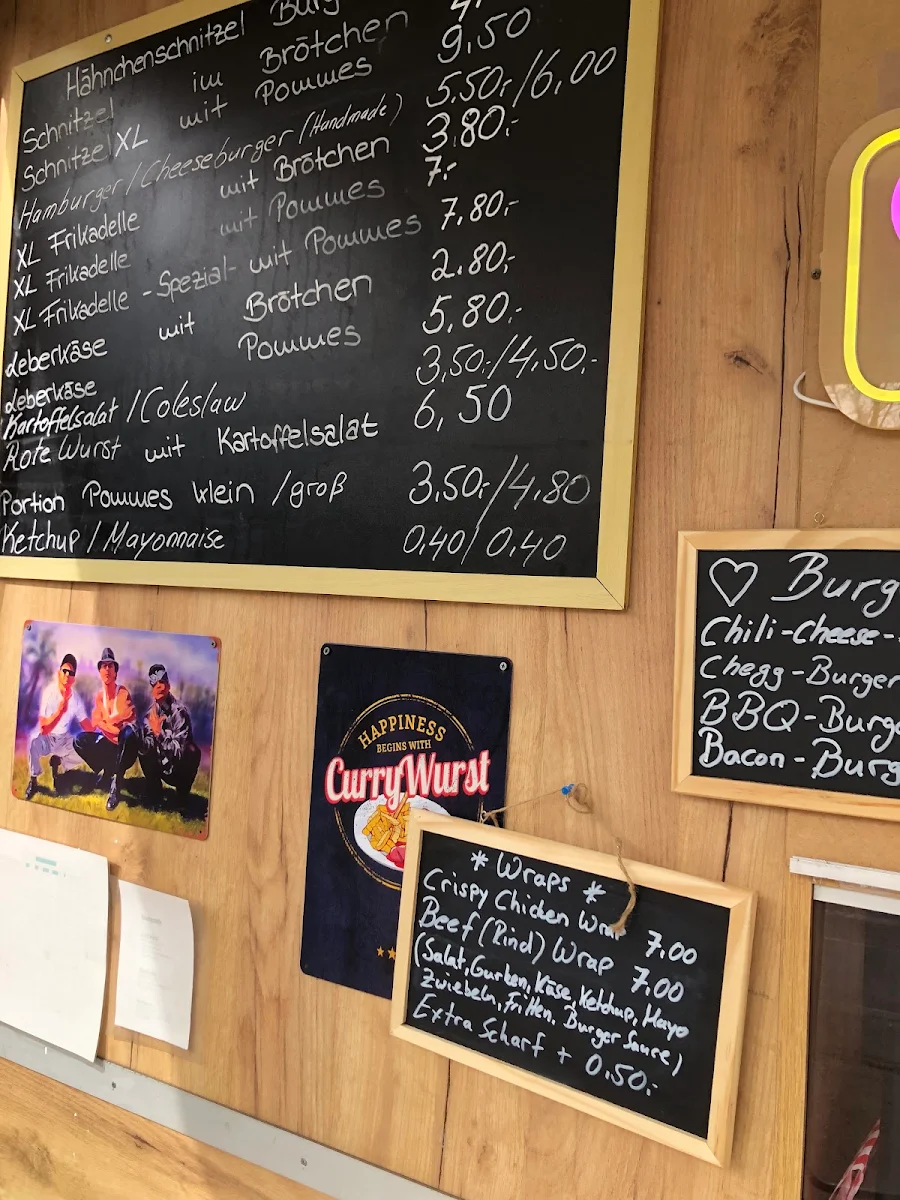 Hähnchenschnitzel Burg
Schnitzel im Brötchen 4,-
Schnitzel XL mit Pommes 9,50
Hamburger / Cheeseburger (Handmade) 5,50,-/6,00
XL Frikadelle mit Brötchen 3.80,-
XL Frikadelle mit Pommes 7,-
XL Frikadelle -Spezial- mit Pommes 7,80,-
Leberkäse mit Brötchen 2.80,-
Leberkäse Pommes 5,80,-
Kartoffelsalat / Coleslaw 3,50,-/4,50,-
Rote Wurst mit Kartoffelsalat 6,50
Portion Pommes klein / groß 3,50,-/4,80
Ketchup / Mayonnaise 0,40/0,40
♡ Burg
Chili-Cheese-
Chegg-Burger
BBQ-Burg
Bacon-Burg
HAPPINESS
BEGINS WITH
CurryWurst
* Wraps *
Crispy Chicken Wrap 7.00
Beef (Rind) Wrap 7.00
(Salat, Gurken, Käse, Ketchup, Mayo
Zwiebeln, Fritten, Burger Sauce)
Extra Scharf + 0,50,-